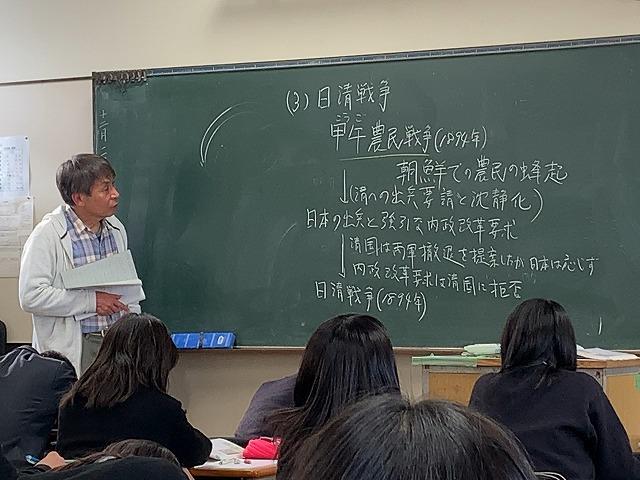 十二月
(3) 日清戦争
こうご
甲午農民戦争(1894年)
朝鮮での農民の蜂起
(清への出兵要請と沈静化)
日本の出兵と強引な内政改革要求
清国は両軍撤退を提案したが日本は応じず
内政改革要求は清国に拒否
日清戦争(1894年)